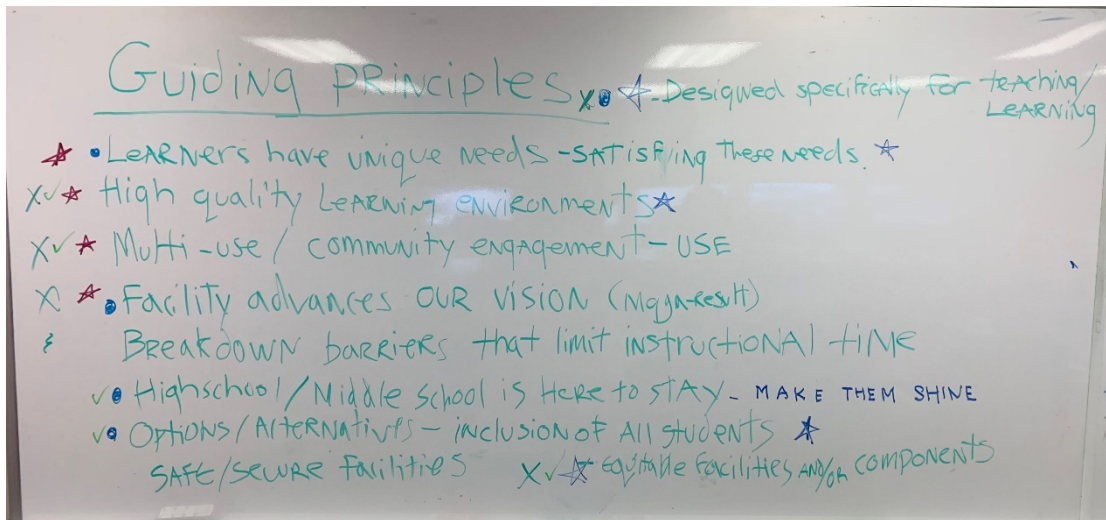 Guiding Principles
Designed specifically for teaching/
Learning
Learners have unique needs - satisfying these needs.
High quality Learning environments
Multi-use / community engagement - USE
Facility advances OUR vision
Breakdown barriers that limit instructional time
Highschool/Middle School is Here to stay - MAKE THEM SHINE
Options/Alternatives - inclusion of All students
SAFE/SECURE Facilities
Equitable Facilities AND/OR components